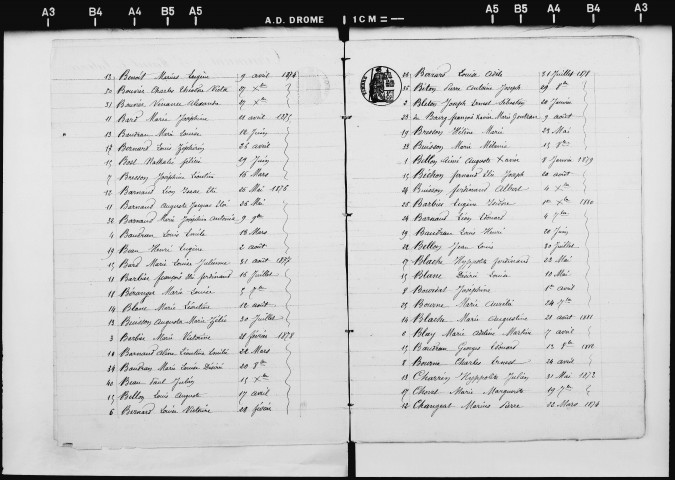 A3 B4 A4 B5 A5 A.D. DROME 1CM = A5 B5 A4 B4 A3
12 Benoît Marius Eugène 9 avril 1874
30 Bouvier Charles Théodore Victor 27 Xbre
31 Bouvier Venance Alexandre 27 Xbre
11 Bard Marie Joséphine 11 avril 1875
13 Baudran Marie Louise 12 Juin
17 Bernard Louis Zéphirin 26 avril
15 Bost Nathalie 29 Juin
7 Bresson Joséphine Léontine 16 Mars
12 Barnaud Léon Isaac Eli 25 Mai 1876
11 Barnaud Auguste Jacques Eloi 26 Mai
32 Barnaud Marie Joséphine Antonia 9 9bre
4 Baudran Louis Emile 13 Mars
19 Beau Henri Eugène 2 août
15 Bard Marie Louise Julienne 31 août 1877
11 Barbier françois Eli ferdinand 16 Juillet
18 Béranger Marie Louise 2 7bre
14 Blanc Marie Léontine 12 août
13 Buisson Auguste Marie 30 Juillet
3 Barbier Marie Victorine 28 février 1878
10 Barnaud Léontine Emilie 22 Mars
34 Baudran Marie Louise Désiré 20 8bre
40 Beau Paul Julien 15 Xbre
15 Bellon Louis Auguste 17 avril
6 Bernard Louise Victoire 18 février
Borard Louis 31 Juillet 1878
Béton Pierre Antoine Joseph 29 8bre
2 Bléton Joseph Ernest Sébastien 20 Janvier
23 du Bourg françois Xavier Marie Gontran 9 août
19 Bresson Hélène Marie 23 Mai
33 Buisson Marie Mélanie 15 8bre
1 Bellon Aimé Auguste Xavier 8 Janvier 1879
15 Béthon fernand Eli Joseph 20 août
24 Buisson ferdinand Albert 4 Xbre
25 Barbier Eugène Isidore 1er Xbre 1880
24 Barnaud Léon Edouard 4 7bre
19 Baudran Louis Henri 20 Juin
22 Bellon Jean Louis 30 Juillet
17 Blache Hyppolite ferdinand 22 Mai
15 Blanc Désiré Louis 10 Mai
8 Bouvéat Joséphine 1er avril
25 Bourne Marie Aurélie 24 7bre
14 Blache Marie Augustine 28 août 1881
6 Blay Marie Martine 7 avril
15 Baudran Georges Edouard 13 8bre 1882
8 Bourne Charles Ernest 24 avril
13 Charren Hyppolite Julien 31 Mai 1873
17 Chovet Marie Marguerite 19 7bre
12 Changeat Marius Pierre 22 Mars 1874